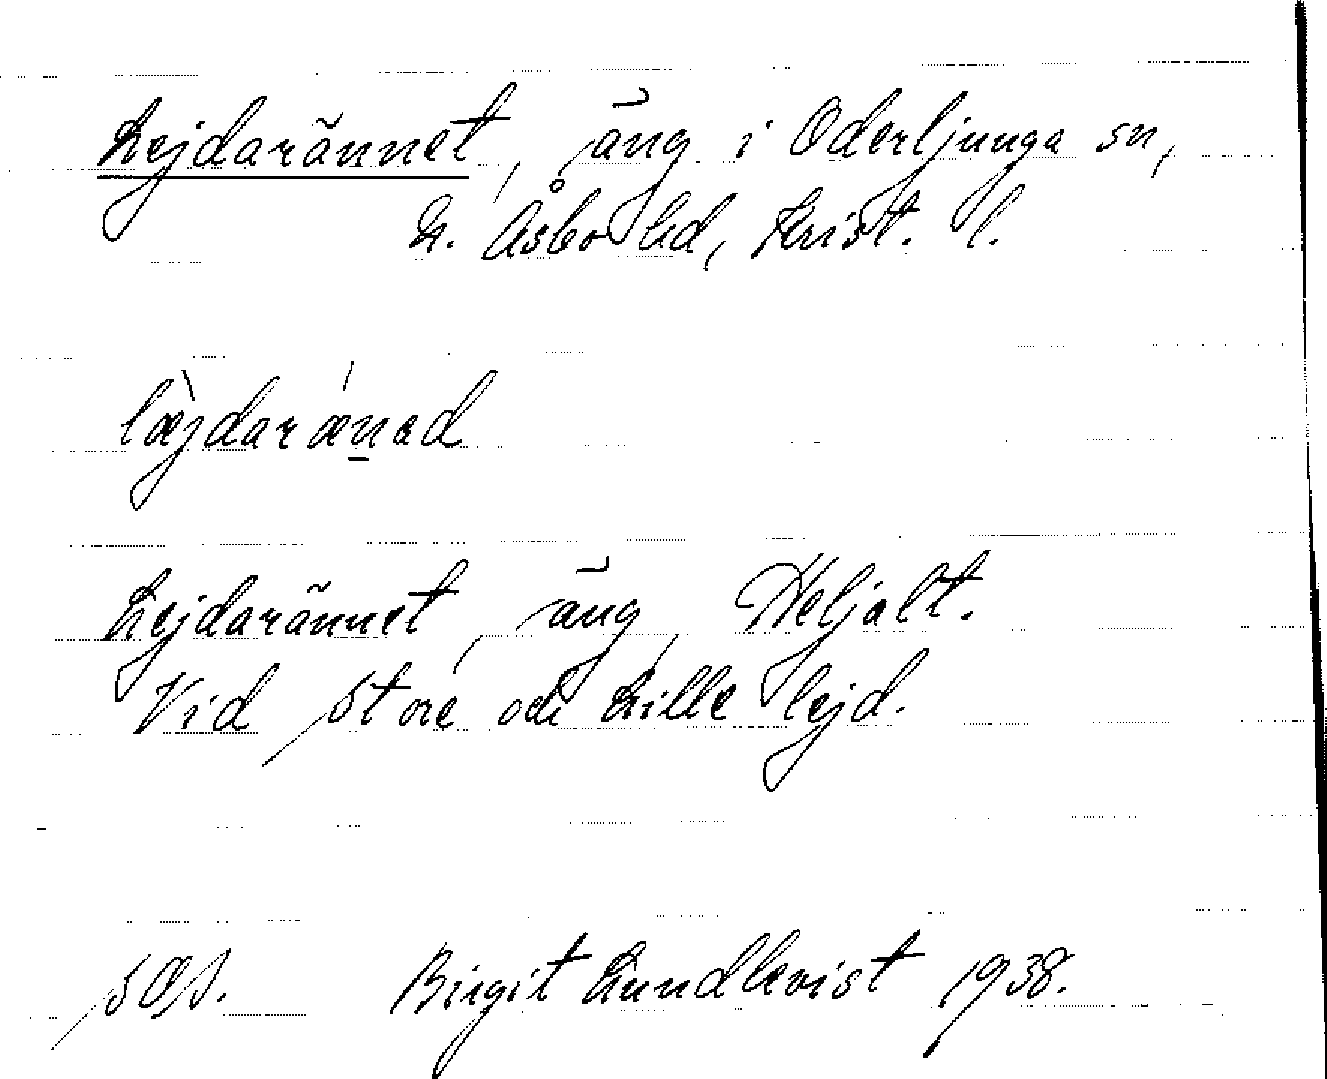 Lejdarännet, äng i Oderljunga sn,
N. Åsbo hd, Krist. l.
læ̀jdarǽn̲ad
Lejdarännet, äng, Heljalt.
Vid Store och Lille lejd.
Birgit Lundkvist 1938.